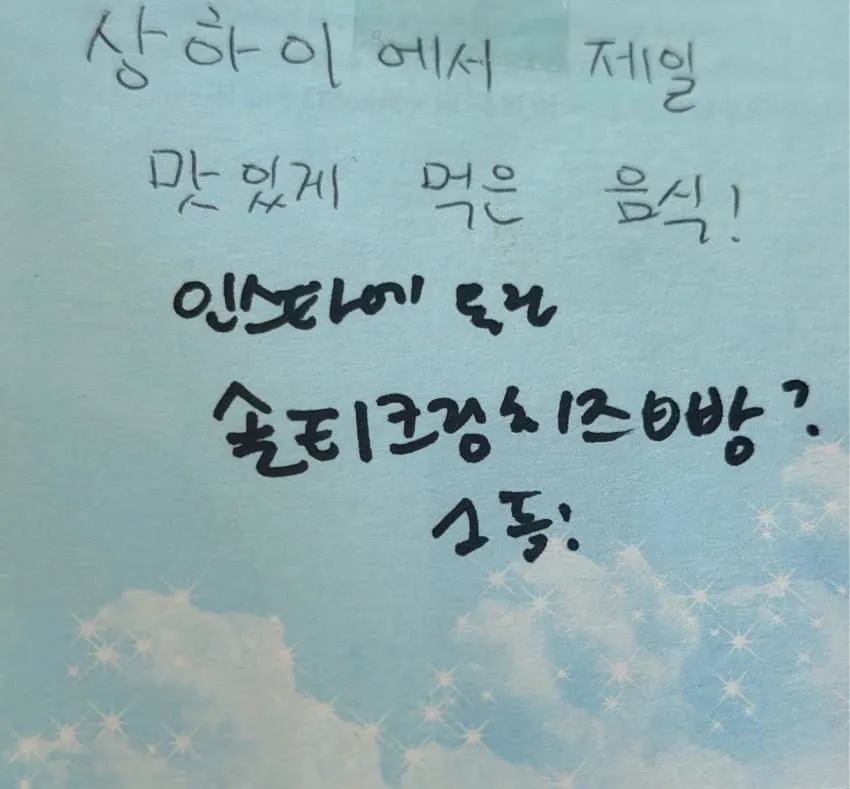 상하이에서 제일
맛있게 먹은 음식!
인스타에 올린
솔티크림치즈빵?